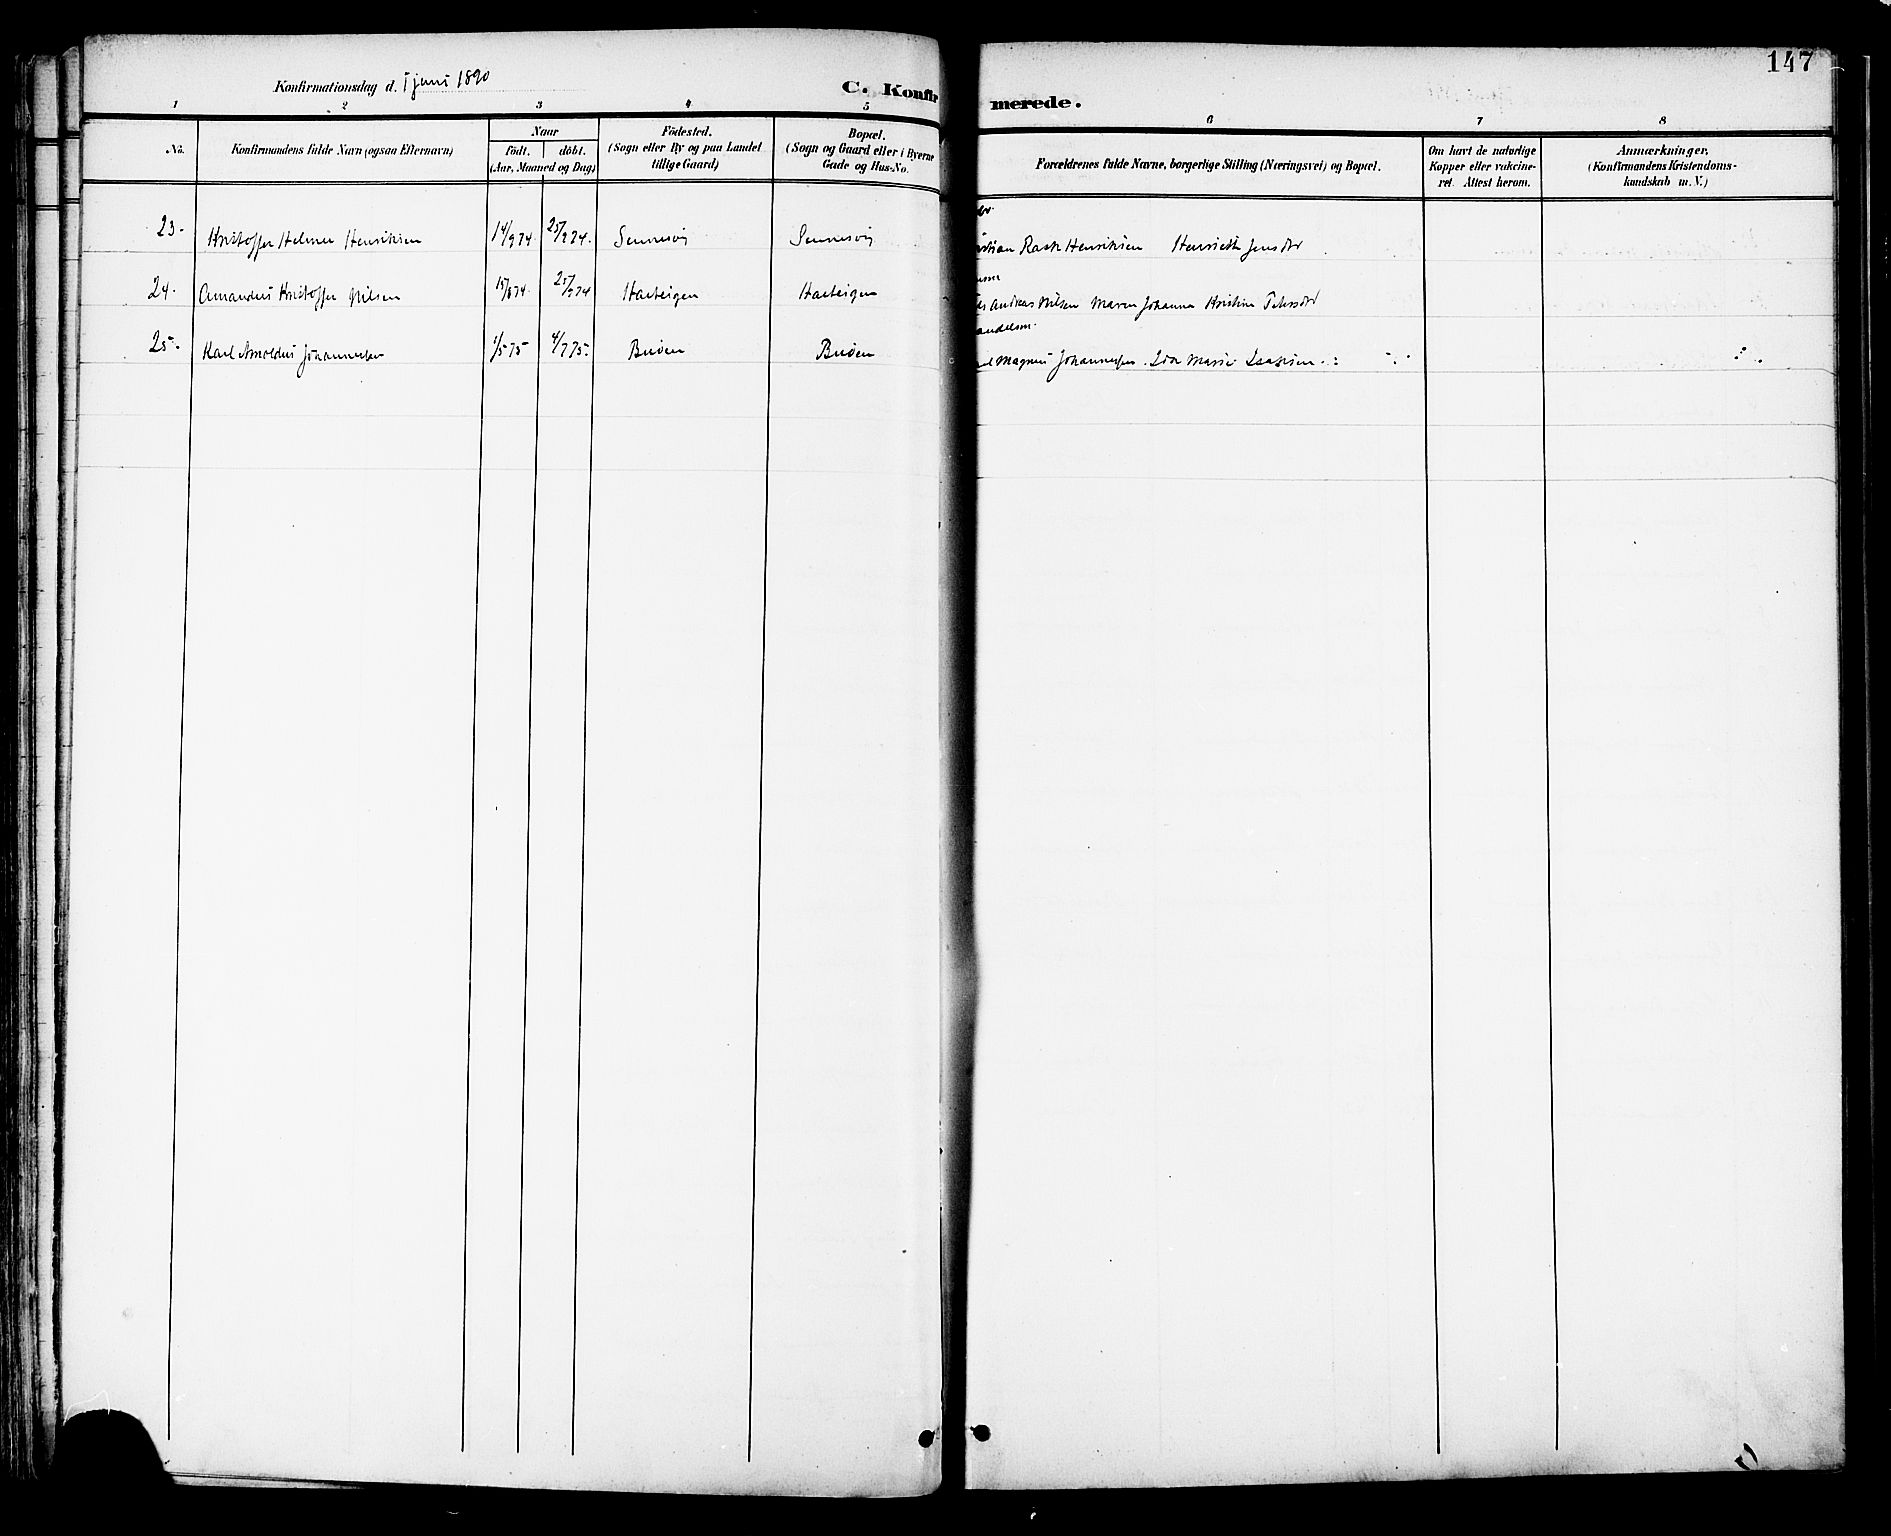 147
Konfirmationsdag d. 1 juni 1890
C. Konfirmerede.
1 2 3 4 5 6 7 8
No. Konfirmandens fulde Navn (ogsaa Efternavn)
Naar
født. døbt.
(Aar, Maaned og Dag)
Fødested.
(Sogn eller By og paa Landet
tillige Gaard)
Bopæl.
(Sogn og Gaard eller i Byerne
Gade og Hus-No.
Forældrenes fulde Navne, borgerlige Stilling (Næringsvei) og Bopæl.
Om havt de naturlige
Kopper eller vakcine-
ret. Attest herom.
Anmærkninger.
(Konfirmandens Kristendoms-
kundskab m. V.)
23. Kristoffer Helmer Henriksen 14/9 74. 25/9 74. Sennesvig Sennesvig Rask Henriksen Henriette Jensdtr
24. Amandus Kristoffer Nilsen 15/8 74. 25/9 74 Harteigen Harteigen Andreas Nilsen Maren Johanna Kristine Pedersdtr
25. Karl Arnoldus Johannesen 1/5 75 4/7 75. Buøen Buøen Magnus Johannesen. Ida Marie Isaksen